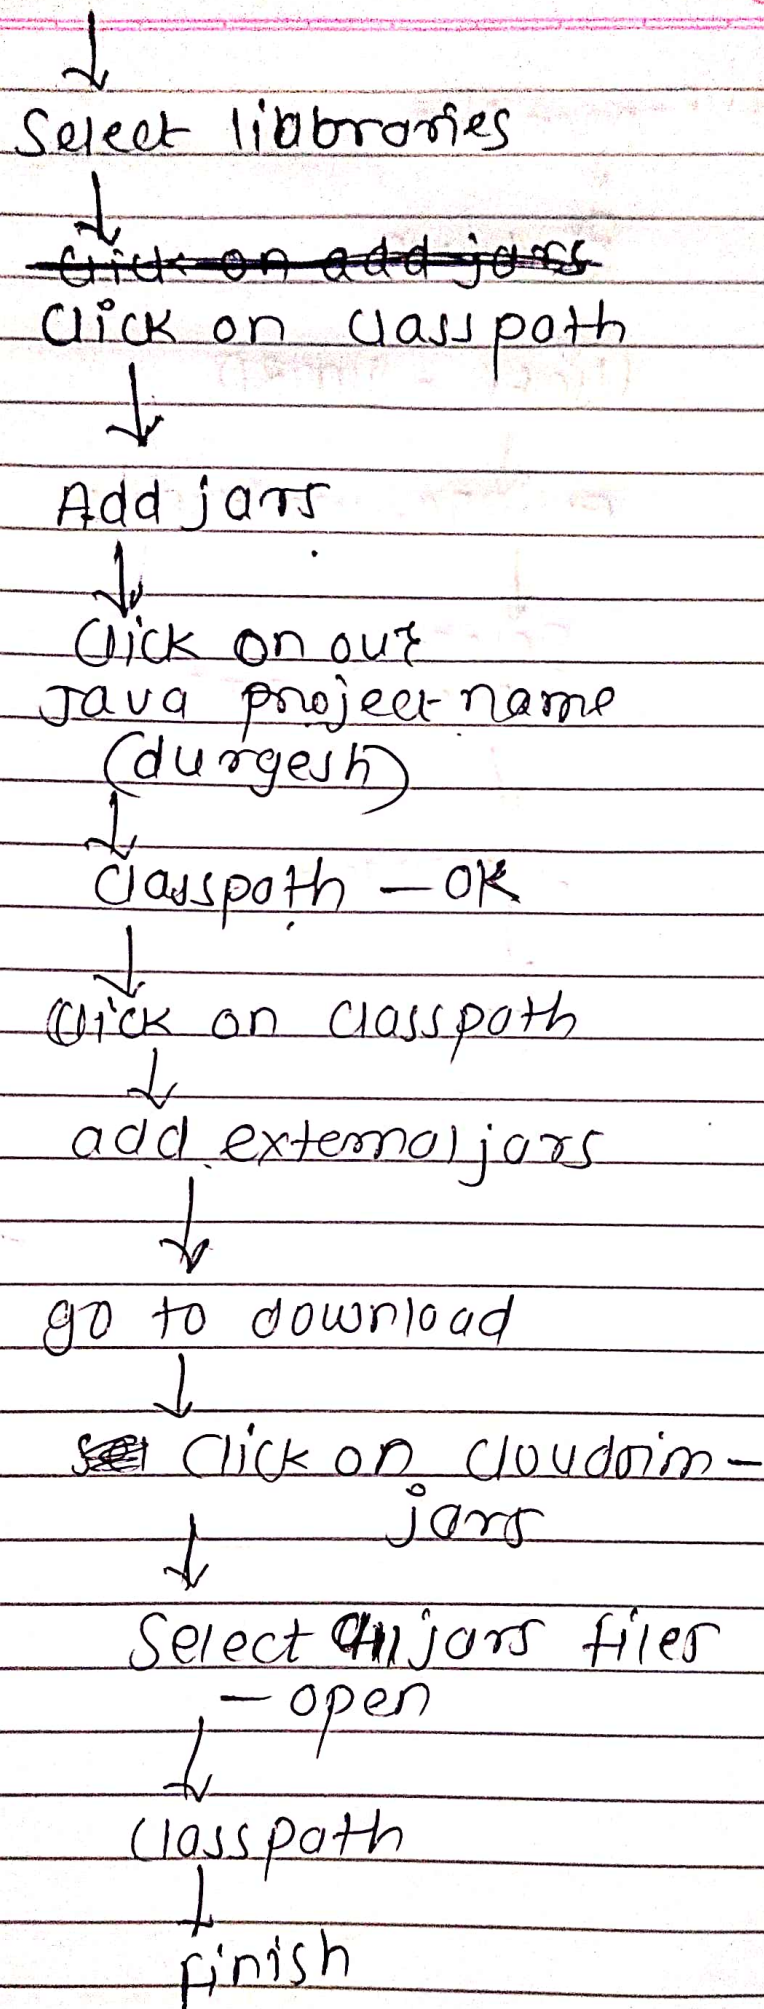 ↓
Select libbraries
↓
Click on add jars
Click on classpath
↓
Add jars
↓
Click on our
Java project name
(durgesh)
↓
Classpath - OK
↓
Click on classpath
↓
add external jars
↓
go to download
↓
Click on cloudsim-
jars
↓
Select All jars files
- open
↓
Classpath
↓
finish